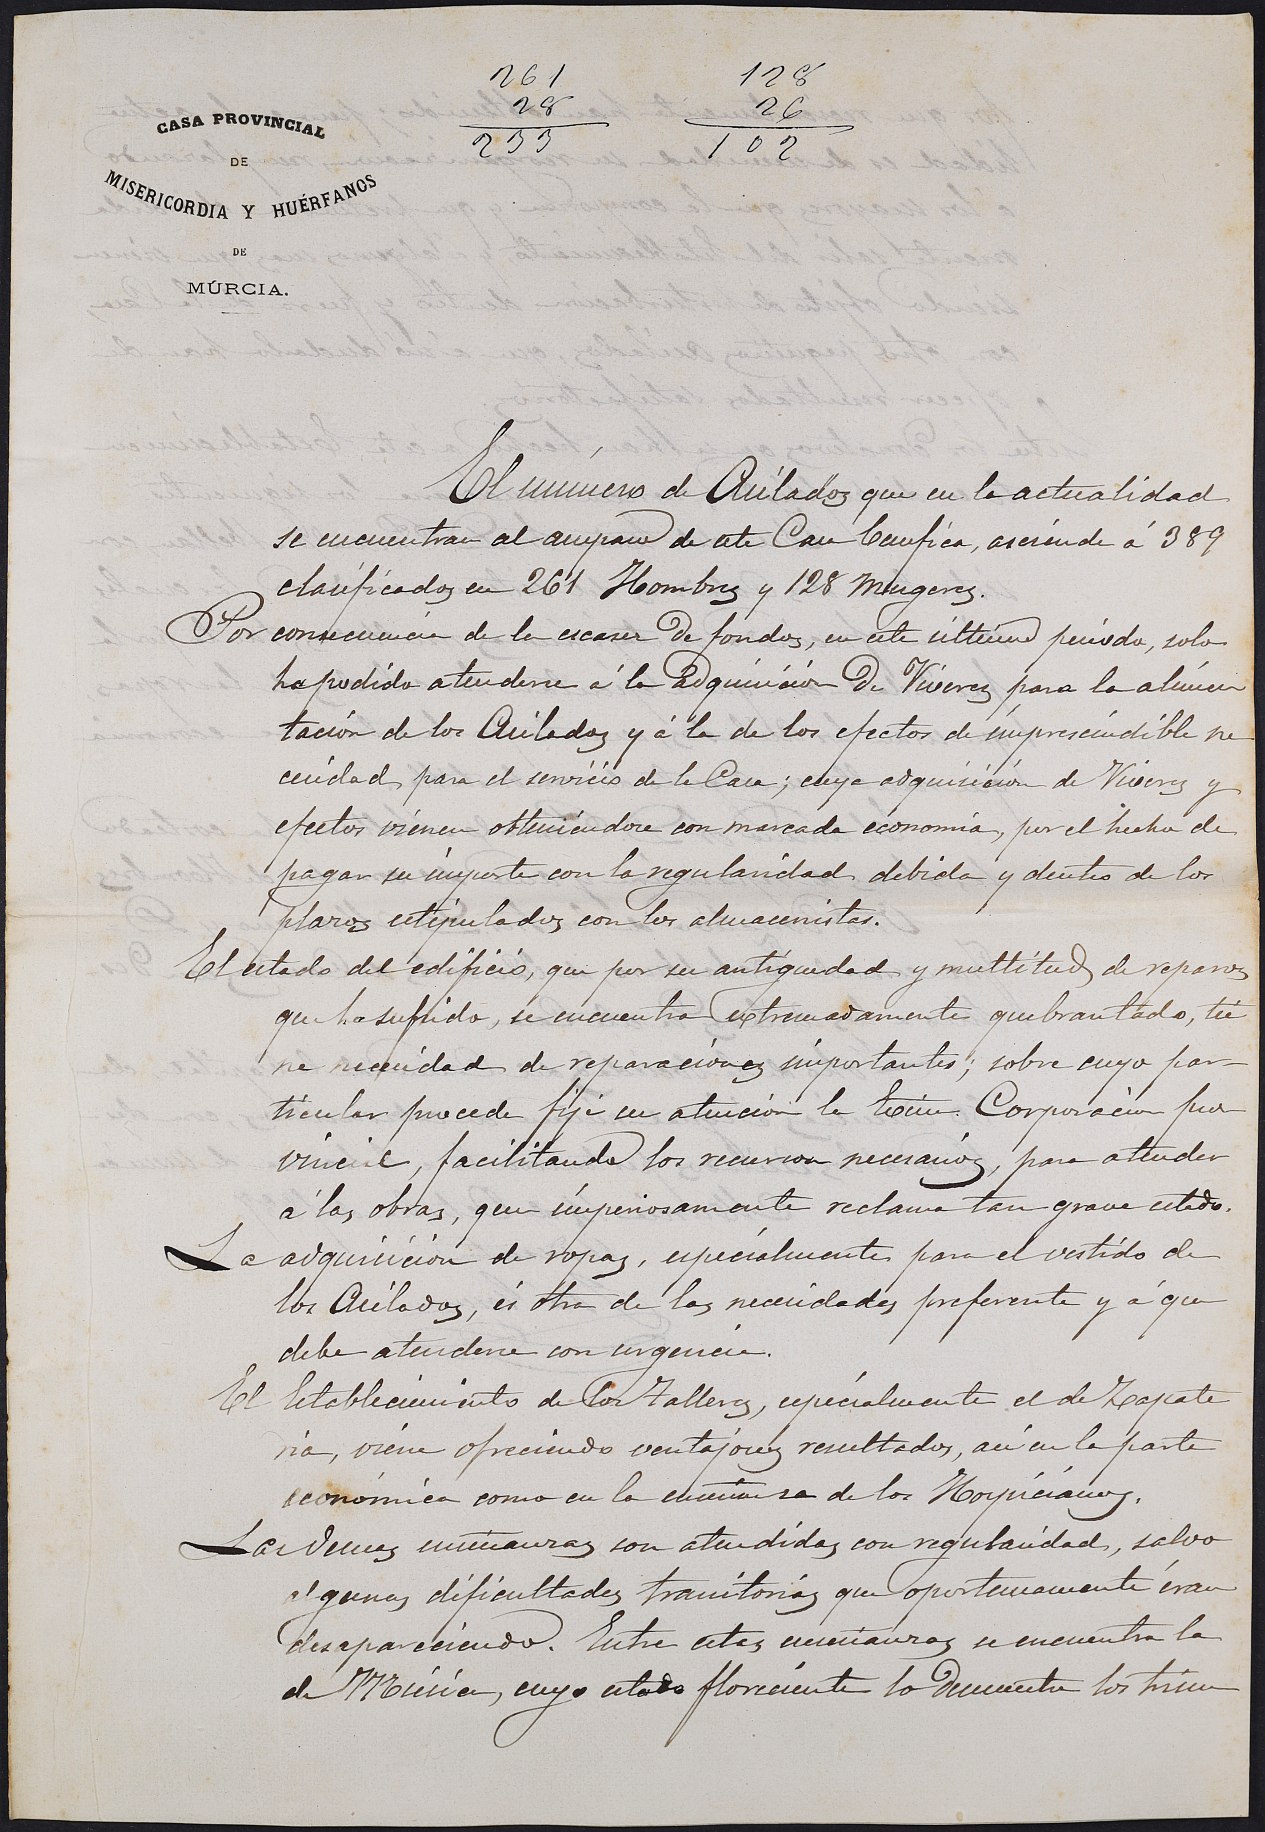 261
28
233
128
26
102
CASA PROVINCIAL
DE
MISERICORDIA Y HUÉRFANOS
DE
MÚRCIA.
El número de Asilados que en la actualidad
se encuentran al amparo de esta Casa benéfica, asciende á 389
clasificados en 261 Hombres y 128 Mugeres.
Por consecuencia de la escasez de fondos, en este último periodo, solo
ha podido atenderse á la adquisición de Víveres para la alimen
tación de los Asilados y á la de los efectos de imprescindible ne
cesidad para el servicio de la Casa; cuya adquisición de Víveres y
efectos vienen obteniéndose con marcada economía, por el hecho de
pagar su importe con la regularidad debida y dentro de los
plazos estipulados con los almacenistas.
El estado del edificio, que por su antigüedad y multitud de reparos
que ha sufrido, se encuentra extremadamente quebrantado, tie
ne necesidad de reparaciones importantes; sobre cuyo par-
ticular procede fije su atención la Excma. Corporación pro
vincial, facilitando los recursos necesarios, para atender
á las obras, que imperiosamente reclama tan grave estado.
La adquisición de ropas, especialmente para el vestido de
los Asilados, és otra de las necesidades preferente y á que
debe atenderse con urgencia.
El Establecimiento de los Talleres, especialmente el de Zapate
ria, viene ofreciendo ventajosos resultados, asi en la parte
económica como en la enseñanza de los Hospicianos.
Las demas enseñanzas son atendidas con regularidad, salvo
algunas dificultades transitorias que oportunamente irán
desapareciendo. Entre estas enseñanzas se encuentra la
de Música, cuyo estado floreciente lo demuestra los triun